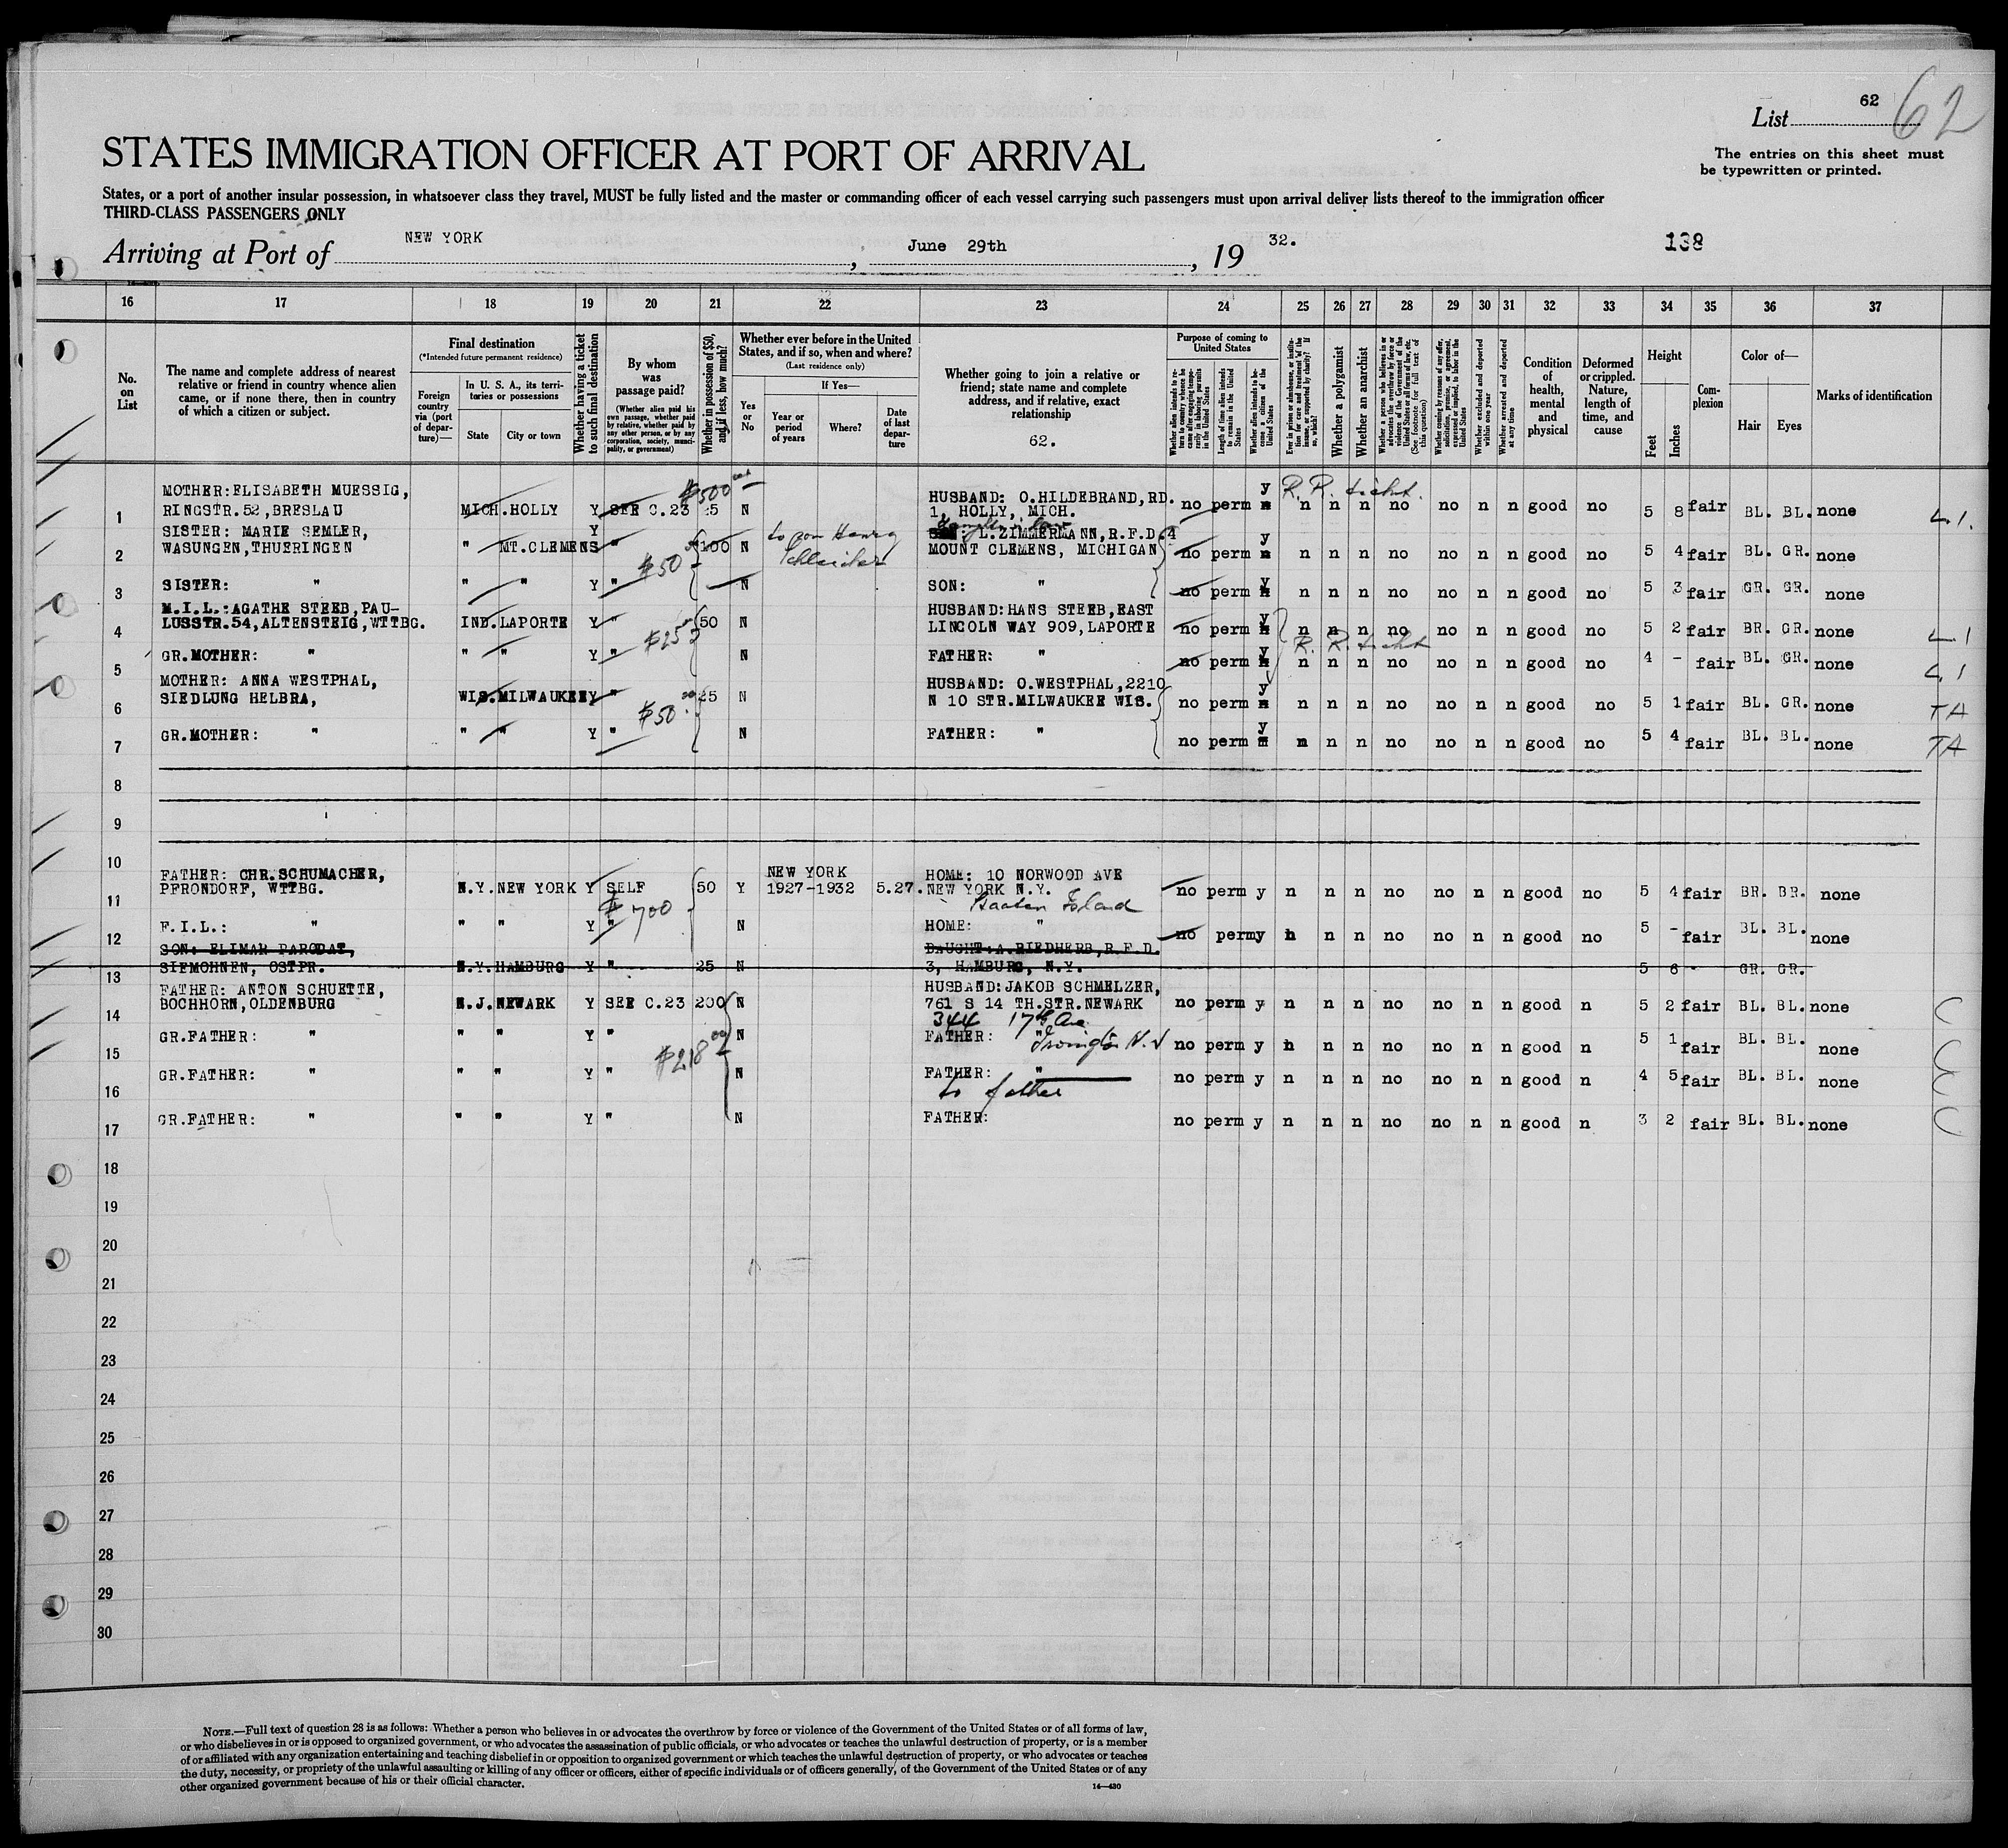 62
List 62
The entries on this sheet must
be typewritten or printed.
STATES IMMIGRATION OFFICER AT PORT OF ARRIVAL
States, or a port of another insular possession, in whatsoever class they travel, MUST be fully listed and the master or commanding officer of each vessel carrying such passengers must upon arrival deliver lists thereof to the immigration officer
THIRD-CLASS PASSENGERS ONLY
Arriving at Port of NEW YORK, June 29th, 19 32.
138
16 17 18 19 20 21 22 23 24 25 26 27 28 29 30 31 32 33 34 35 36 37
No. on List
The name and complete address of nearest
relative or friend in country whence alien
came, or if none there, then in country
of which a citizen or subject.
Final destination
(*Intended future permanent residence)
Foreign country via (port of departure)—
In U. S. A., its territories or possessions
State City or town
Whether having a ticket to such final destination
By whom was passage paid?
(Whether alien paid his own passage, whether paid by relative, whether paid by any other person, or by any corporation, society, municipality, or government)
Whether in possession of $50, and if less, how much?
Whether ever before in the United
States, and if so, when and where?
(Last residence only)
Yes or No
If Yes—
Year or period of years
Where?
Date of last departure
Whether going to join a relative or
friend; state name and complete
address, and if relative, exact
relationship
62.
Purpose of coming to United States
Whether alien intends to return to country whence he came after engaging temporarily in laboring pursuits in the United States
Length of time alien intends to remain in the United States
Whether alien intends to become a citizen of the United States
Ever in prison or almshouse, or institution for care and treatment of the insane, or supported by charity? If so, which?
Whether a polygamist
Whether an anarchist
Whether a person who believes in or advocates the overthrow by force or violence of the Government of the United States or all forms of law, etc. (See footnote for full text of this question)
Whether coming by reasons of any offer, solicitation, promise, or agreement, expressed or implied, to labor in the United States
Whether excluded and deported within one year
Whether arrested and deported at any time
Condition of health, mental and physical
Deformed or crippled. Nature, length of time, and cause
Height
Feet Inches
Complexion
Color of—
Hair Eyes
Marks of identification
MOTHER:ELISABETH MUESSIG, $500 HUSBAND: O.HILDEBRAND,RD. y R. R. ticket.
1 RINGSTR.52,BRESLAU MICH.HOLLY Y SEE C.23 25 N 1, HOLLY, MICH. no perm n n n n no no n n good no 5 8 fair BL. BL. none L.1.
SISTER: MARIE SEMLER, Y to son Henry L.ZIMMERMANN,R.F.D.4 y
2 WASUNGEN,THUERINGEN " MT.CLEMENS " 100 N MOUNT CLEMENS, MICHIGAN no perm n n n n no no n n good no 5 4 fair BL. GR. none
$50
3 SISTER: " " " Y " N SON: " no perm y n n n no no n n good no 5 3 fair GR. GR. none
M.I.L.:AGATHE STEEB,PAU- HUSBAND:HANS STEEB,EAST
4 LUSSTR.54,ALTENSTEIG,WTTBG. IND.LAPORTE Y " 50 N LINCOLN WAY 909,LAPORTE no perm y n n n no no n n good no 5 2 fair BR. GR. none L.1
$25 R. R. ticket
5 GR.MOTHER: " " " Y " N FATHER: " no perm y n n n no no n n good no 4 - fair BL. GR. none L.1
MOTHER: ANNA WESTPHAL, HUSBAND: O.WESTPHAL,2210
6 SIEDLUNG HELBRA, WIS.MILWAUKEE Y " 25 N N 10 STR.MILWAUKEE WIS. no perm y n n n no no n n good no 5 1 fair BL. GR. none TA
$50
7 GR.MOTHER: " " " Y " N FATHER: " no perm y n n n no no n n good no 5 4 fair BL. BL. none TA
8
9
10
FATHER: CHR.SCHUMACHER, NEW YORK HOME: 10 NORWOOD AVE
11 PFRONDORF, WTTBG. N.Y.NEW YORK Y SELF 50 Y 1927-1932 5.27. NEW YORK N.Y. no perm y n n n no no n n good no 5 4 fair BR. BR. none
$700 Staaten Island
12 F.I.L.: " " " Y " N HOME: " no perm y n n n no no n n good no 5 - fair BL. BL. none
SON: ELIMAR PARODAT, DAUGHT:A.RIEDHERB,R.F.D.
13 SIEMOHNEN, OSTPR. N.Y.HAMBURG Y " 25 N 3, HAMBURG, N.Y. 5 6 - GR. GR.
FATHER: ANTON SCHUETTE, HUSBAND:JAKOB SCHMELZER,
14 BOCHHORN,OLDENBURG N.J.NEWARK Y SEE C.23 200 N 761 S 14 TH.STR.NEWARK no perm y n n n no no n n good n 5 2 fair BL. BL. none
344 17th Ave
15 GR.FATHER: " " " Y " N FATHER: " Irvington N.J no perm y n n n no no n n good n 5 1 fair BL. BL. none
$218
16 GR.FATHER: " " " Y " N FATHER: " no perm y n n n no no n n good n 4 5 fair BL. BL. none
to father
17 GR.FATHER: " " " Y " N FATHER: no perm y n n n no no n n good n 3 2 fair BL. BL. none
18
19
20
21
22
23
24
25
26
27
28
29
30
NOTE.—Full text of question 28 is as follows: Whether a person who believes in or advocates the overthrow by force or violence of the Government of the United States or of all forms of law,
or who disbelieves in or is opposed to organized government, or who advocates the assassination of public officials, or who advocates or teaches the unlawful destruction of property, or is a member
of or affiliated with any organization entertaining and teaching disbelief in or opposition to organized government or which teaches the unlawful destruction of property, or who advocates or teaches
the duty, necessity, or propriety of the unlawful assaulting or killing of any officer or officers, either of specific individuals or of officers generally, of the Government of the United States or of any
other organized government because of his or their official character.
14—430